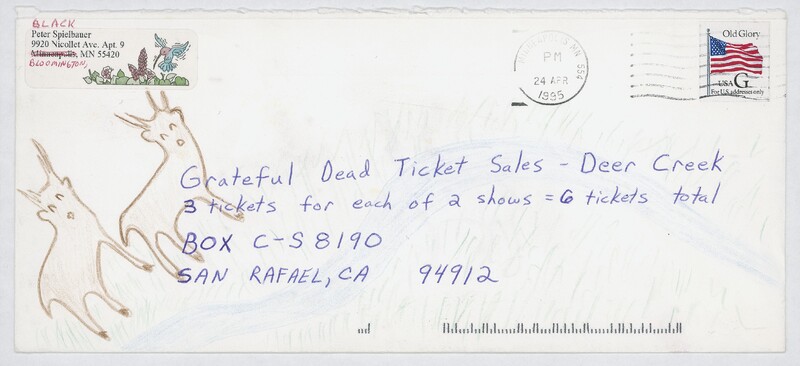 BLACK
Peter Spielbauer
9920 Nicollet Ave. Apt. 9
Minneapolis, MN 55420
BLOOMINGTON,
MINNEAPOLIS MN 554
PM
24 APR
1995
Old Glory
USA G
For U.S. addresses only
Grateful Dead Ticket Sales - Deer Creek
3 tickets for each of 2 shows = 6 tickets total
BOX C-S 8190
SAN RAFAEL, CA 94912